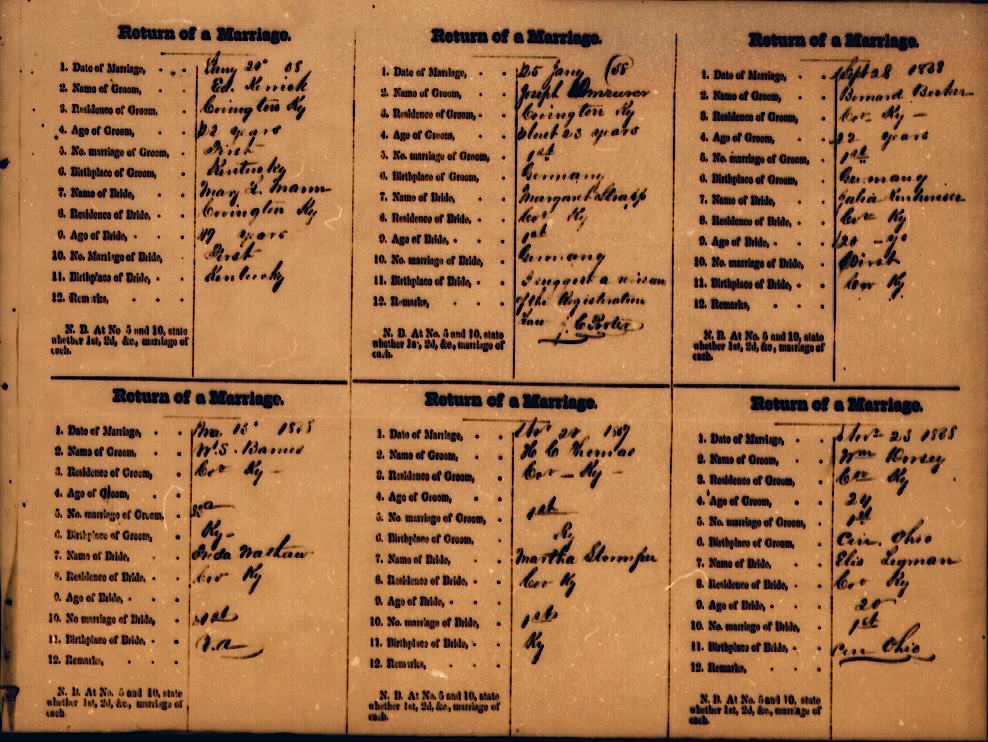 Return of a Marriage.
1. Date of Marriage, 20" 68
2. Name of Groom, Ed.
3. Residence of Groom, Covington Ky
4. Age of Groom, 22 years
5. No. marriage of Groom, First
6. Birthplace of Groom, Kentucky
7. Name of Bride, Mary L. Mann
8. Residence of Bride, Covington Ky
9. Age of Bride, 19 years
10. No. Marriage of Bride, First
11. Birthplace of Bride, Kentucky
12. Remarks,
N. B. At No. 5 and 10, state
whether 1st, 2d, &c., marriage of
each.
Return of a Marriage.
1. Date of Marriage, 25 Jany
2. Name of Groom, Joseph
3. Residence of Groom, Covington Ky
4. Age of Groom, about 23 years
5. No. marriage of Groom, 1st
6. Birthplace of Groom, Germany
7. Name of Bride, Margaret Strapp
8. Residence of Bride, Cov Ky
9. Age of Bride,
10. No. marriage of Bride, 1st
11. Birthplace of Bride, Germany
12. Remarks, I suggest a
of the Registration
Law J. C. Porter
N. B. At No. 5 and 10, state
whether 1st, 2d, &c., marriage of
each.
Return of a Marriage.
1. Date of Marriage, Sept 28 1868
2. Name of Groom, Bernard
3. Residence of Groom, Cov Ky
4. Age of Groom, 22 years
5. No. marriage of Groom, 1st
6. Birthplace of Groom, Germany
7. Name of Bride, Julia
8. Residence of Bride, Cov Ky
9. Age of Bride, 20
10. No. marriage of Bride, First
11. Birthplace of Bride, Cov Ky
12. Remarks,
N. B. At No. 5 and 10, state
whether 1st, 2d, &c., marriage of
each.
Return of a Marriage.
1. Date of Marriage, 1868
2. Name of Groom, W. S. Barnes
3. Residence of Groom, Cov Ky
4. Age of Groom,
5. No. marriage of Groom,
6. Birthplace of Groom, Ky
7. Name of Bride,
8. Residence of Bride, Cov Ky
9. Age of Bride,
10. No marriage of Bride, 1st
11. Birthplace of Bride,
12. Remarks,
N. B. At No. 5 and 10, state
whether 1st, 2d, &c., marriage of
each
Return of a Marriage.
1. Date of Marriage, Nov 20 1867
2. Name of Groom, H C Thomas
3. Residence of Groom, Cov - Ky -
4. Age of Groom,
5. No. marriage of Groom, 1st
6. Birthplace of Groom, Ky
7. Name of Bride, Martha
8. Residence of Bride, Cov Ky
9. Age of Bride,
10. No. marriage of Bride, 1st
11. Birthplace of Bride, Ky
12. Remarks,
N. B. At No. 5 and 10, state
whether 1st, 2d, &c., marriage of
each.
Return of a Marriage.
1. Date of Marriage, Nov 23 1868
2. Name of Groom, Wm Kersey
3. Residence of Groom, Cov Ky
4. Age of Groom, 24
5. No. marriage of Groom, 1st
6. Birthplace of Groom, Cin. Ohio
7. Name of Bride, Elis Legman
8. Residence of Bride, Cov Ky
9. Age of Bride, 20
10. No. marriage of Bride, 1st
11. Birthplace of Bride, Cin Ohio
12. Remarks,
N. B. At No. 5 and 10, state
whether 1st, 2d, &c., marriage of
each.